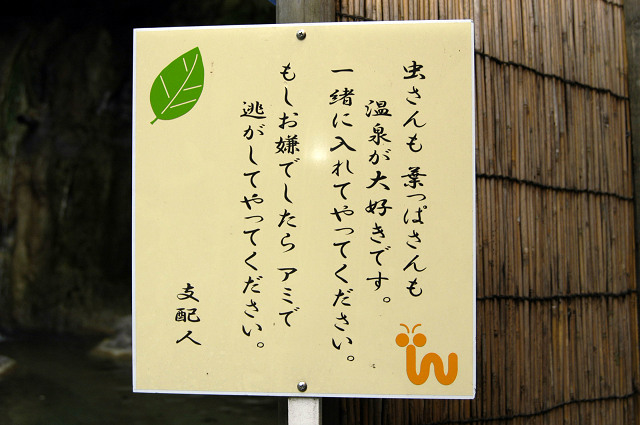 虫さんも 葉っぱさんも
温泉が大好きです。
一緒に入れてやってください。
もしお嫌でしたら アミで
逃がしてやってください。
支配人